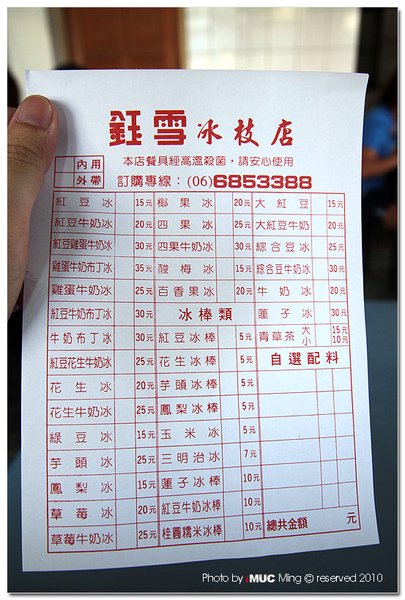 鈺雪冰枝店
內用
外帶
本店餐具經高溫殺菌，請安心使用
訂購專線：(06)6853388
紅豆冰 15元 椰果冰 20元 大紅豆 15元
紅豆牛奶冰 20元 四果冰 20元 大紅豆牛奶 20元
紅豆雞蛋牛奶冰 30元 四果牛奶冰 30元 綜合豆冰 25元
雞蛋牛奶布丁冰 35元 酸梅冰 15元 綜合豆牛奶冰 30元
雞蛋牛奶冰 25元 百香果冰 20元 牛奶冰 20元
紅豆牛奶布丁冰 30元 冰棒類 蓮子冰 30元
牛奶布丁冰 30元 紅豆冰棒 5元 青草茶 大 15元 小 10元
紅豆花生牛奶冰 25元 花生冰棒 5元 自選配料
花生冰 20元 芋頭冰棒 5元
花生牛奶冰 25元 鳳梨冰棒 5元
綠豆冰 15元 玉米冰 5元
芋頭冰 25元 三明治冰 7元
鳳梨冰 15元 蓮子冰棒 10元
草莓冰 20元 紅豆牛奶冰棒 10元
草莓牛奶冰 25元 桂圓糯米冰棒 10元 總共金額 元
Photo by iMUC Ming © reserved 2010